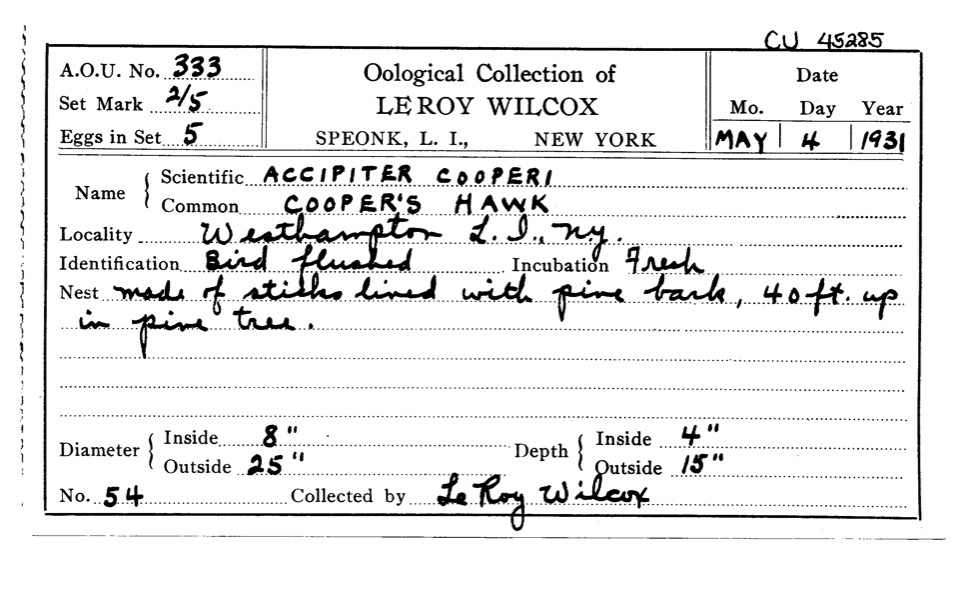 CU 45285
A.O.U. No. 333
Set Mark 2/5
Eggs in Set 5
Oological Collection of
LE ROY WILCOX
SPEONK, L. I., NEW YORK
Date
Mo. Day Year
MAY 4 1931
Name
Scientific ACCIPITER COOPERI
Common COOPER'S HAWK
Locality Westhampton L.I., N.Y.
Identification Bird flushed Incubation Fresh
Nest made of sticks lined with pine bark, 40 ft. up
in pine tree.
Diameter Inside 8" Depth Inside 4"
Outside 25" Outside 15"
No. 54 Collected by Le Roy Wilcox